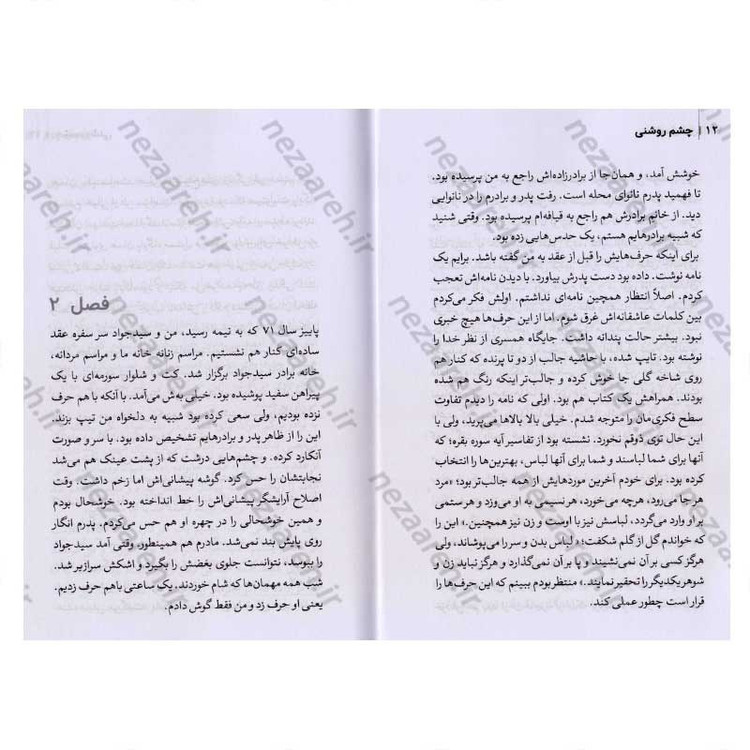 ۱۲ | چشم روشنی
خوشش آمد، و همان‌جا از برادرزاده‌اش راجع به من پرسیده بود.
تا فهمید پدرم نانوای محله است. رفت پدر و برادرم را در نانوایی
دید. از خانم برادرش هم راجع به قیافه‌ام پرسیده بود. وقتی شنید
که شبیه برادرهایم هستم، یک حدس‌هایی زده بود.
برای اینکه حرف‌هایش را قبل از عقد به من گفته باشد. برایم یک
نامه نوشت. داده بود دست پدرش بیاورد. با دیدن نامه‌اش تعجب
کردم. اصلاً انتظار همچین نامه‌ای نداشتم. اولش فکر می‌کردم
بین کلمات عاشقانه‌اش غرق شوم. اما از این حرف‌ها هیچ خبری
نبود. بیشتر حالت پندانه داشت. جایگاه همسری از نظر خدا را
نوشته بود. تایپ شده، با حاشیه جالب از دو تا پرنده که کنار هم
روی شاخه گلی جا خوش کرده و جالب‌تر اینکه رنگ هم شده
بودند. همراهش یک کتاب هم بود. اولی که نامه را دیدم تفاوت
سطح فکری‌مان را متوجه شدم. خیلی بالا بالاها می‌پرید، ولی با
این حال توی ذوقم نخورد. نشسته بود از تفاسیر آیه سوره بقره؛ که
آنها برای شما لباسند و شما برای آنها لباس، بهترین‌ها را انتخاب
کرده بود. برای خودم آخرین موردهایش از همه جالب‌تر بود؛ «مرد
هرجا می‌رود، هرچه می‌خورد، هر نسیمی به او می‌وزد و هر ستمی
بر او وارد می‌گردد، لباسش نیز با اوست و زن نیز همچنین.» این را
که خواندم گل از گلم شکفت؛ «لباس بدن و سر را می‌پوشاند، ولی
هرگز کسی بر آن نمی‌نشیند و پا بر آن نمی‌گذارد و هرگز نباید زن و
شوهر یکدیگر را تحقیر نمایند.» منتظر بودم ببینم که این حرف‌ها را
قرار است چطور عملی کند.
فصل ۲
پاییز سال ۷۱ که به نیمه رسید، من و سیدجواد سر سفره عقد
ساده‌ای کنار هم نشستیم. مراسم زنانه خانه ما و مراسم مردانه،
خانه برادر سیدجواد برگزار شد. کت و شلوار سورمه‌ای با یک
پیراهن سفید پوشیده بود. خیلی به‌ش می‌آمد. با آنکه با هم حرف
نزده بودیم، ولی سعی کرده بود شبیه به دلخواه من تیپ بزند.
این را از ظاهر پدر و برادرهایم تشخیص داده بود. با سر و صورت
آنکارد کرده. و چشم‌هایی درشت که از پشت عینک هم می‌شد
نجابتشان را حس کرد. گوشه پیشانی‌اش اما زخم داشت. وقت
اصلاح آرایشگر پیشانی‌اش را خط انداخته بود. خوشحال بودم
و همین خوشحالی را در چهره او هم حس می‌کردم. پدرم انگار
روی پایش بند نمی‌شد. مادرم هم همینطور. وقتی آمد سیدجواد
را ببوسد، نتوانست جلوی بغضش را بگیرد و اشکش سرازیر شد.
شب همه مهمان‌ها که شام خوردند. یک ساعتی باهم حرف زدیم.
یعنی او حرف زد و من فقط گوش دادم.
nezaareh.ir